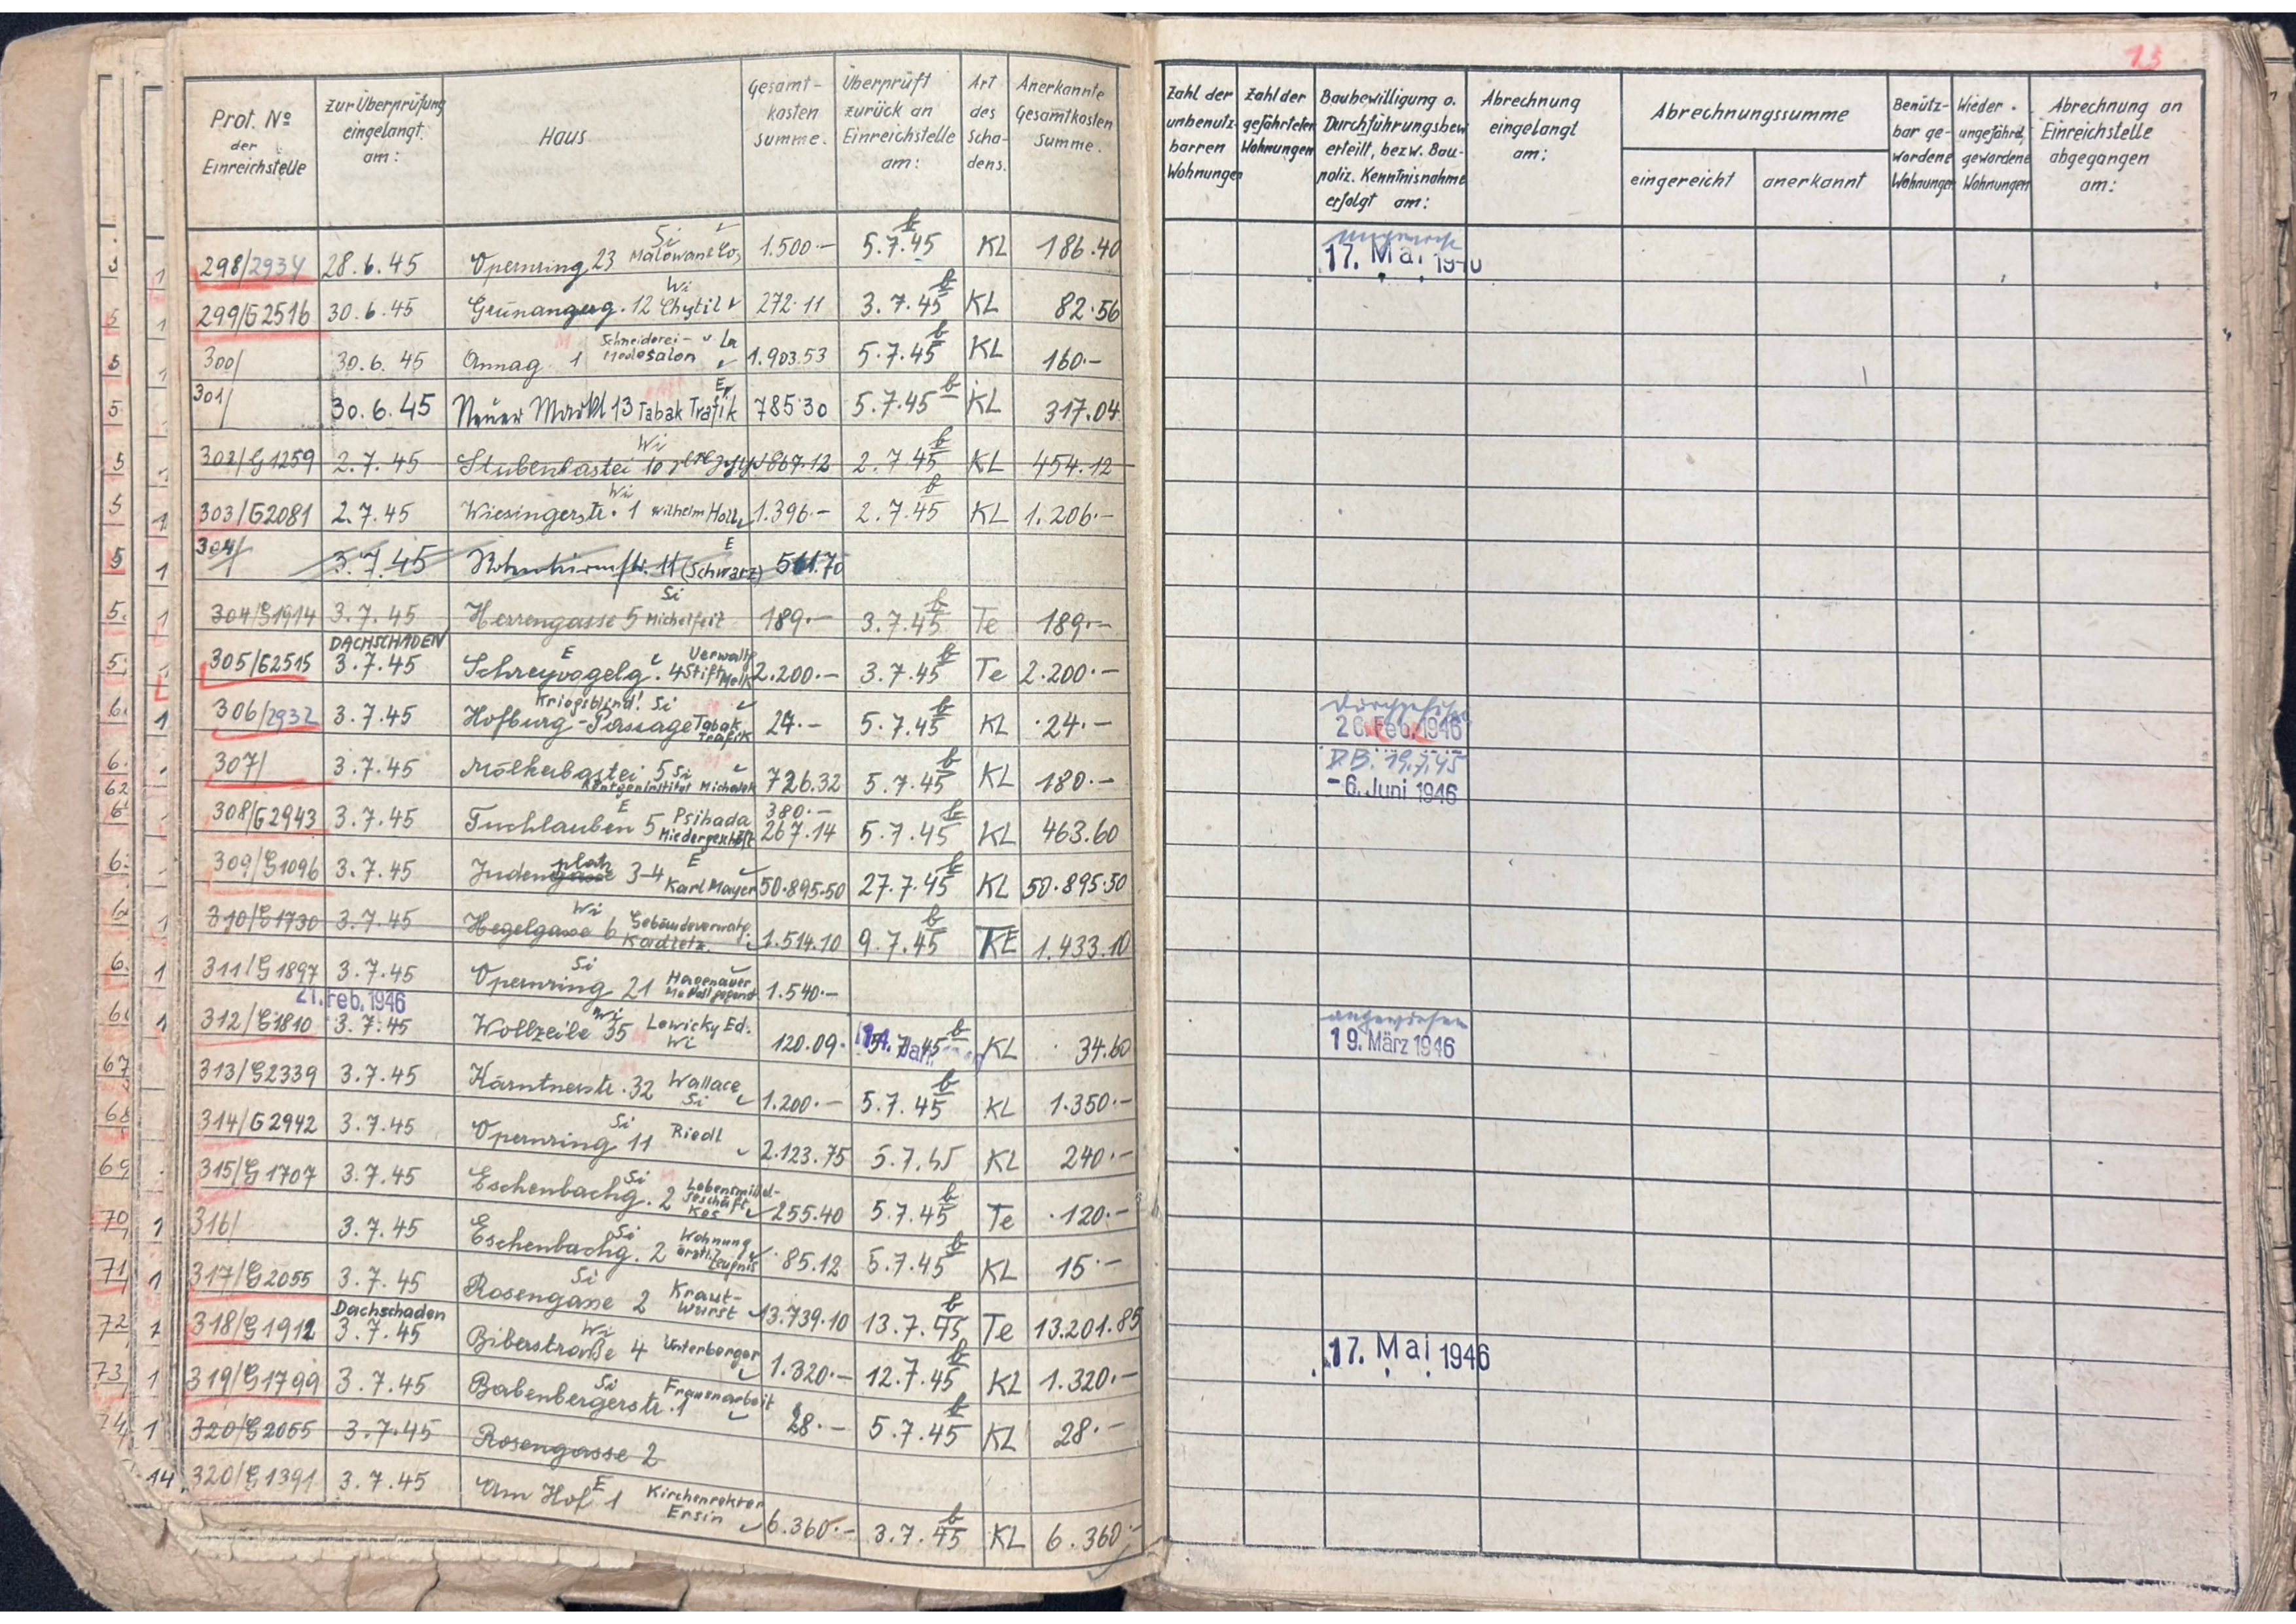 13
Prot. No der Einreichstelle | zur Überprüfung eingelangt. am: | Haus | Gesamt-kosten summe. | Überprüft zurück an Einreichstelle am: | Art des Scha-dens. | Anerkannte Gesamtkosten Summe. | Zahl der unbenutz-barren Wohnungen | Zahl der gefährteten Wohnungen | Baubewilligung o. Durchführungsbew. erteilt, bezw. Bau-poliz. Kenntnisnahme erfolgt am: | Abrechnung eingelangt am: | Abrechnungssumme eingereicht | anerkannt | Benütz-bar ge-wordene Wohnungen | Wieder ungefährd. gewordene Wohnungen | Abrechnung an Einreichstelle abgegangen am:
298/2934 | 28.6.45 | Opernring 23 Si | 1.500.- | 5.7.45 b | KL | 186.40 | 17. Mai
299/G2516 | 30.6.45 | Grünangerg. 12 Wi Chytil | 272.11 | 3.7.45 b | KL | 82.56
300/ | 30.6.45 | Annag. 1 Schneiderei- Modesalon | 1.903.53 | 5.7.45 b | KL | 160.-
301/ | 30.6.45 | Neuer Markt 13 Tabak Trafik E | 785.30 | 5.7.45 b | KL | 317.04
302/G1259 | 2.7.45 | Stubenbastei 10 Wi | 867.12 | 2.7.45 b | KL | 454.12
303/G2081 | 2.7.45 | Wiesingerstr. 1 Wi Wilhelm Holl | 1.396.- | 2.7.45 b | KL | 1.206.-
304/ | 3.7.45 | Rotenturmstr. 11 (Schwarz) E | 511.70
304/G1914 | 3.7.45 | Herrengasse 5 Si Michelfeit | 189.- | 3.7.45 b | Te | 189.-
305/G2515 | DACHSCHADEN 3.7.45 | Schreyvogelg. 4 E Verwaltg Stift Melk | 2.200.- | 3.7.45 b | Te | 2.200.-
306/2932 | 3.7.45 | Kriegsblind! Si Hofburg-Passage Tabak Trafik | 24.- | 5.7.45 b | KL | 24.- | 26. Feb. 1946
307/ | 3.7.45 | Mölkerbastei 5 Si Röntgeninstitut Michalek | 726.32 | 5.7.45 b | KL | 180.- | D.B. 19.7.45 -6. Juni 1946
308/G2943 | 3.7.45 | Tuchlauben 5 E Psihada Miedergeschäft | 380.- 267.14 | 5.7.45 b | KL | 463.60
309/G1096 | 3.7.45 | Judengasse platz 3-4 E Karl Mayer | 50.895.50 | 27.7.45 b | KL | 50.895.50
310/G1730 | 3.7.45 | Hegelgasse 6 Wi Gebäudeverwaltg. Kadletz | 1.514.10 | 9.7.45 b | KE | 1.433.10
311/G1897 | 3.7.45 | Opernring 21 Si Hagenauer | 1.540.-
21. Feb. 1946
312/G1810 | 3.7.45 | Wollzeile 35 Wi Lewicky Ed. | 120.09 | 5.7.45 b | KL | 34.60 | angewiesen 19. März 1946
313/G2339 | 3.7.45 | Kärntnerstr. 32 Wi Wallace | 1.200.- | 5.7.45 b | KL | 1.350.-
314/G2942 | 3.7.45 | Opernring 11 Si Riedl | 2.123.75 | 5.7.45 | KL | 240.-
315/G1707 | 3.7.45 | Eschenbachg. 2 Si Lebensmittel-geschäft Kos | 255.40 | 5.7.45 b | Te | 120.-
316/ | 3.7.45 | Eschenbachg. 2 Si Wohnung ärztl. Zeugnis | 85.12 | 5.7.45 b | KL | 15.-
317/G2055 | 3.7.45 | Rosengasse 2 Si Kraut-Wurst | 13.739.10 | 13.7.45 b | Te | 13.201.85
318/G1912 | Dachschaden 3.7.45 | Biberstraße 4 Wi Unterberger | 1.320.- | 12.7.45 b | KL | 1.320.- | 17. Mai 1946
319/G1799 | 3.7.45 | Babenbergerstr. 1 Si Frauenarbeit | 28.- | 5.7.45 b | KL | 28.-
320/G2055 | 3.7.45 | Rosengasse 2
320/G1391 | 3.7.45 | Am Hof 1 E Kirchenrektor Ersin | 6.360.- | 3.7.45 b | KL | 6.360.-